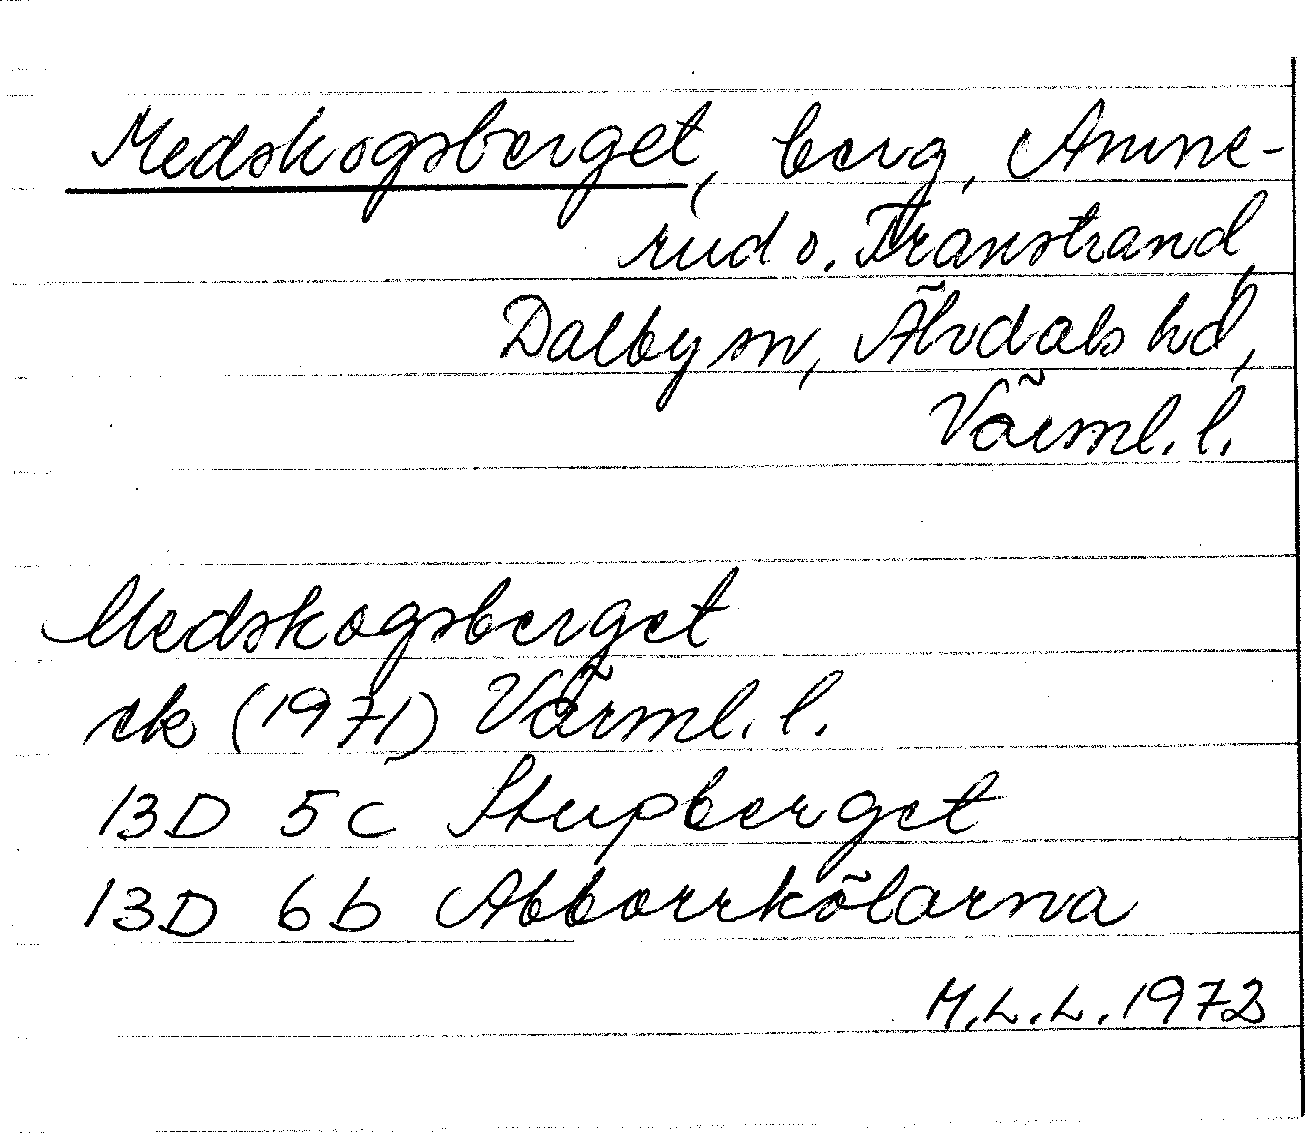 Medskogsberget, berg, Amne-
rud o. Transtrand,
Dalby sn, Älvdals hd,
Värml. l.
Medskogsberget
ek (1971) Värml. l.
13D 5c Stupberget
13D 6b Abborrkölarna
M.L.L. 1972